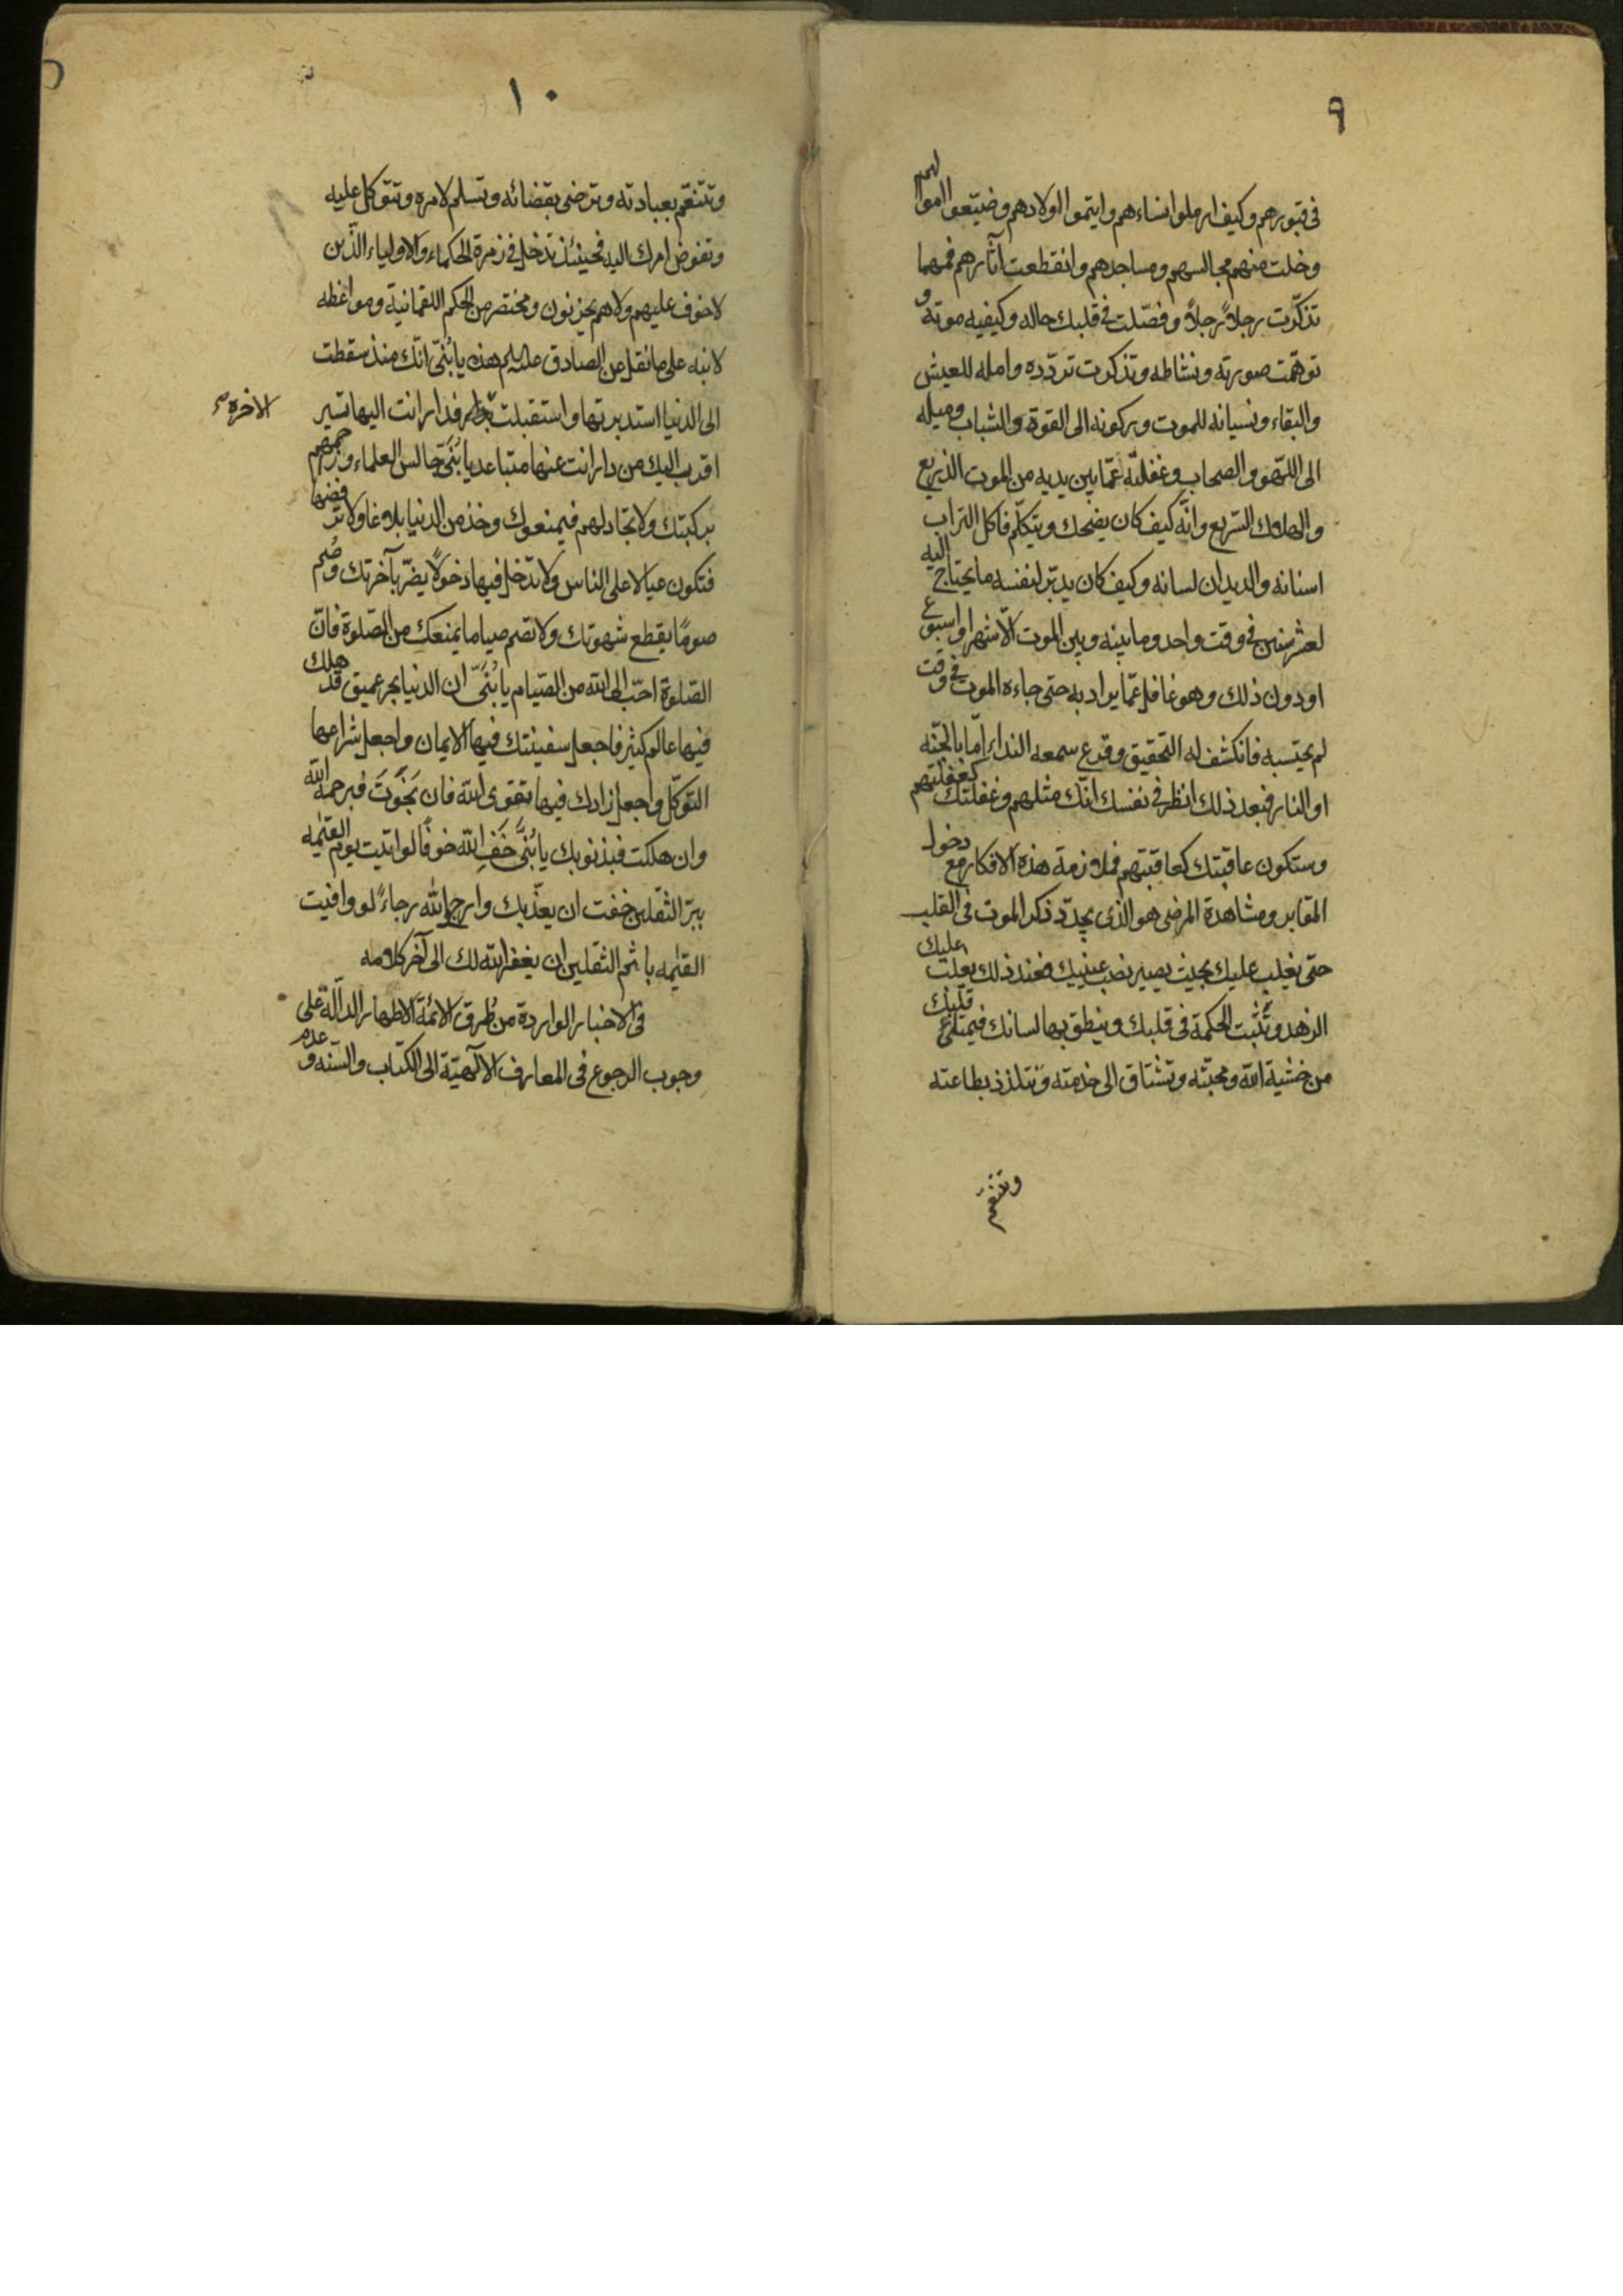 ٩
في قبورهم وكيف ارملوا نساءهم وايتموا اولادهم وضيّعوا اموالهم
وخلت منهم مجالسهم ومساجدهم وانقطعت آثارهم فمهما
تذكّرت رجلاً رجلاً وفصّلت في قلبك حاله وكيفيه موته و
توهّمت صورته ونشاطه وتذكرت تردّده وامله للعيش
والبقاء ونسيانه للموت وركونه الى القوة والشباب وميله
الى اللّهو والصحاب وغفلته عمّا بين يديه من الموت الذريع
والهلاك السّريع وانّه كيف كان يضحك ويتكلّم فاكل التراب
اسنانه والديدان لسانه وكيف كان يدبّر لنفسه ما يحتاج اليه
لعشر سنين في وقت واحد وما بينه وبين الموت الّا شهر او اسبوع
او دون ذلك وهو غافل عمّا يراد به حتى جاءه الموت في وقت
لم يحتسبه فانكشف له التحقيق وقرع سمعه النداء امّا بالجنّه
او النار فبعد ذلك انظر في نفسك انّك مثلهم وغفلتك كغفلتهم
وستكون عاقبتك كعاقبتهم فملازمة هذه الافكار مع دخول
المقابر ومشاهدة المرضى هو الذي يجدّد ذكر الموت في القلب
حتى يغلب عليك بحيث يصير نصب عينيك فعند ذلك يغلب عليك
الزهد وتثبت الحكمة في قلبك وينطق بها لسانك فيمتلئ قلبك
من خشية الله ومحبّته وتشتاق الى خدمته وتتلذذ بطاعته
وتتنعّم
١٠
وتتنعّم بعبادته وترضى بقضائه وتسلم لامره وتتوكل عليه
وتفوض امرك اليه فحينئذ تدخل في زمرة الحكماء والاولياء الّذين
لا خوف عليهم ولا هم يحزنون ومختصر من الحكم اللقمانية ومواعظه
لابنه على ما نقل عن الصادق عليه السلم هذه يا بُنيّ انّك منذ سقطت
الى الدنيا استدبرتها واستقبلت فدار انت اليها تسير
الاخرة صح
اقرب اليك من دار انت عنها متباعد يا بُنَيّ جالس العلماء وزاحمهم
بركبتك ولا تجادلهم فيمنعوك وخذ من الدنيا بلاغا ولا ترفضها
فتكون عيالا على الناس ولا تدخل فيها دخولاً يضرّ بآخرتك وصُم
صومًا يقطع شهوتك ولا تصم صياما يمنعك من الصّلوة فانّ
الصّلوة احبّ الى الله من الصّيام يا بُنَيّ ان الدنيا بحر عميق قد هلك
فيها عالم كثير فاجعل سفينتك فيها الايمان واجعل شراعها
التوكّل واجعل زادك فيها تقوى الله فان نَجَوتَ فبرحمة الله
وان هلكت فبذنوبك يا بُنيَّ خَفِ الله خوفًا لو اتيت يوم القيٰمه
ببرّ الثقلين خفت ان يعذّبك وارج الله رجاءً لو وافيت
القيٰمه باثم الثقلين ان يغفر الله لك الى آخر كلامه
في الاخبار الواردة من طُرق الائمّة الاطهار الدالّة على
وجوب الرجوع في المعارف الالٓهيّة الى الكتاب والسّنّه وعدم